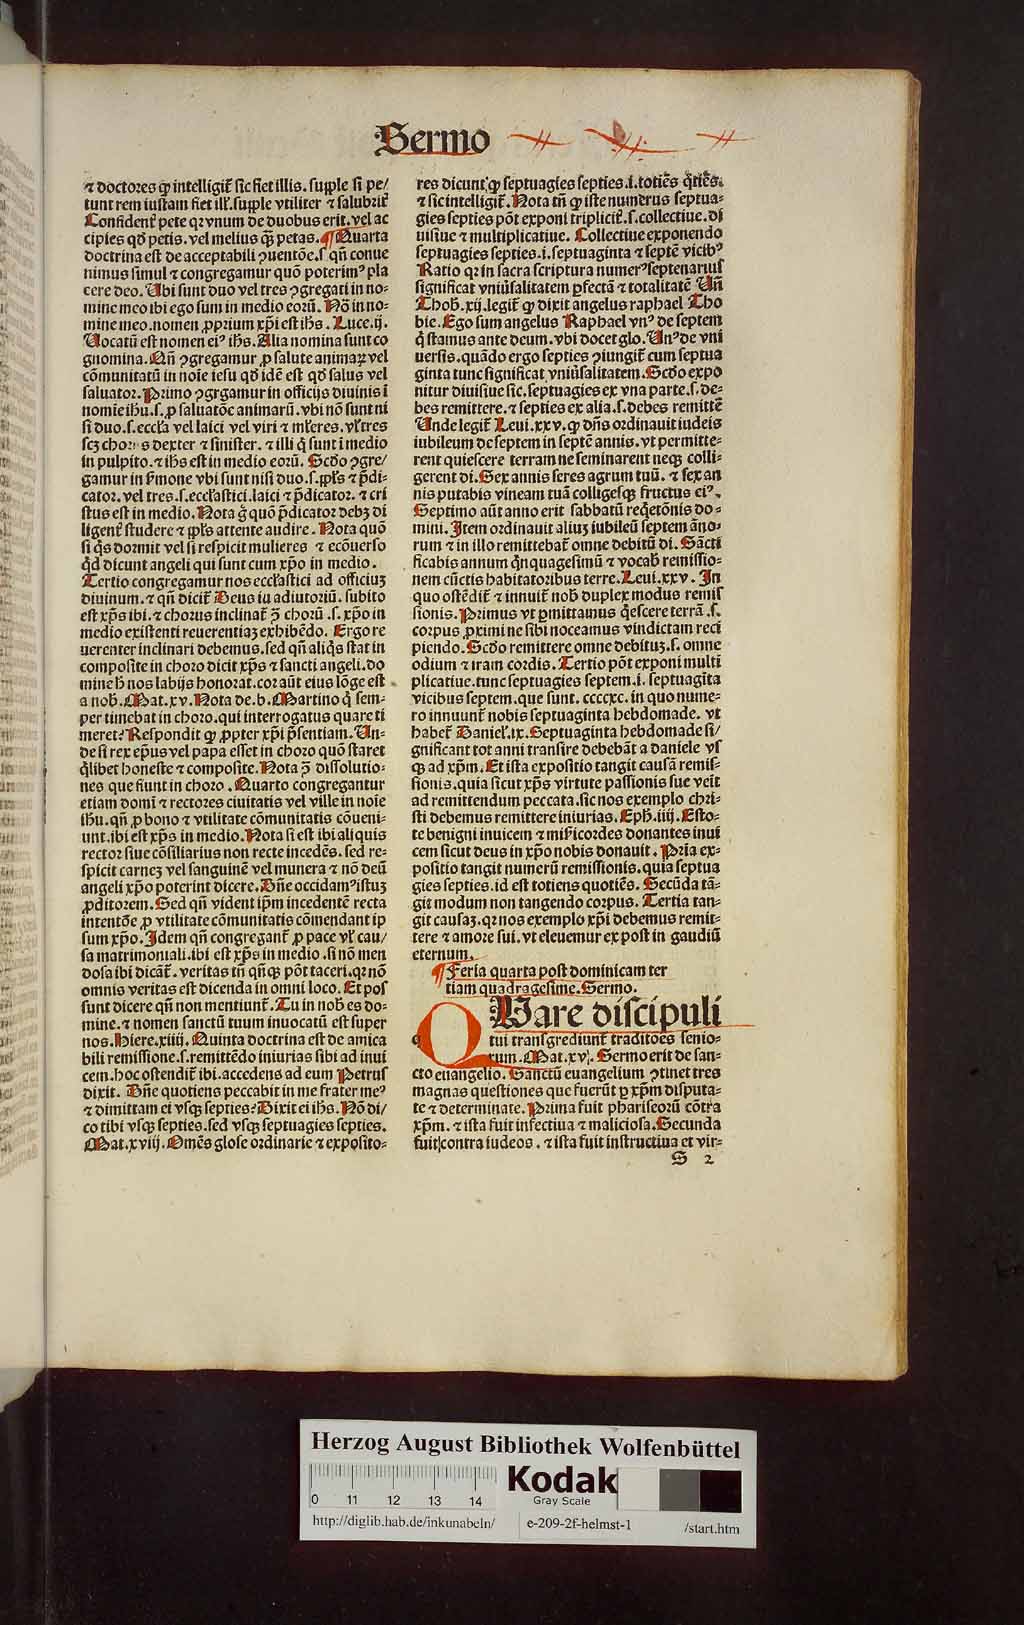 Sermo
⁊ doctores ꝙ intelligit̃ sic fiet illis. supple si pe/
tunt rem iustam fiet ill̃. suple vtiliter ⁊ salubrit̃
Confident̃ pete qꝛ vnum de duobus erit. vel ac
cipies qd̃ petis. vel melius q̃ꝫ petas. ¶ Quarta
doctrina est de acceptabili ꝯuentõe. s̃ qñ conue
nimus simul ⁊ congregamur quõ poterimꝰ pla
cere deo. Ubi sunt duo vel tres ꝯgregati in no-
mine meo ibi ego sum in medio eorũ. Nõ in no-
mine meo. nomen ꝓprium xp̃i est ih̃s. Luce. ij.
Uocatũ est nomen eiꝰ ih̃s. Alia nomina sunt co
gnomina. Qñ ꝯgregamur ꝓ salute animaꝝ vel
cõmunitatũ in noĩe iesu qd̃ idẽ est qd̃ salus vel
saluator. Primo ꝯgrgamur in officijs diuinis ĩ
nomĩe ih̃u. s. ꝓ saluatõe animarũ. vbi nõ sunt ni
si duo. s. eccl̃a vel laici vel viri ⁊ ml̃eres. vl̃ tres
scꝫ chorꝰ s dexter ⁊ sinister. ⁊ illi q̃ sunt ĩ medio
in pulpito. ⁊ ih̃s est in medio eorũ. Scd̃o ꝯgre/
gamur in ẜmone vbi sunt nisi duo. s. ppl̃s ⁊ p̃di-
cator. vel tres. s. eccl̃astici. laici ⁊ p̃dicator. ⁊ cri
stus est in medio. Nota g̊ quõ p̃dicator debꝫ di
ligent̃ studere ⁊ ppl̃s attente audire. Nota quõ
si q̃s dormit vel si respicit mulieres ⁊ ecõuerso
q̃d dicunt angeli qui sunt cum xp̃o in medio.
Tertio congregamur nos eccl̃astici ad officiuꝫ
diuinum. ⁊ qñ dicit̃ Deus in adiutoriũ. subito
est xp̃s ibi. ⁊ chorus inclinat̃ ꝯ̃ chorũ. s. xp̃o in
medio existenti reuerentiaꝫ exhibẽdo. Ergo re
uerenter inclinari debemus. sed qñ aliq̃s stat in
composite in choro dicit xp̃s ⁊ sancti angeli. do
mine h̃ nos labijs honorat. cor aũt eius lõge est
a nob̃. Mat. xv. Nota de. b. Martino q̃ sem-
per timebat in choro. qui interrogatus quare ti
meret? Respondit ꝙ ꝓpter xp̃i p̃sentiam. Un-
de si rex ep̃us vel papa esset in choro quõ staret
q̃libet honeste ⁊ composite. Nota ꝯ̃ dissolutio-
nes que fiunt in choro. Quarto congregantur
etiam domĩ ⁊ rectores ciuitatis vel ville in noĩe
ih̃u. qñ ꝓ bono ⁊ vtilitate cõmunitatis cõueni-
unt. ibi est xp̃s in medio. Nota si est ibi aliquis
rector siue cõsiliarius non recte incedẽs. sed re-
spicit carneꝫ vel sanguinẽ vel munera ⁊ nõ deũ
angeli xp̃o poterint dicere. Dñe occidamꝰ istuꝫ
ꝓditorem. Sed qñ vident ip̃m incedentẽ recta
intentõe ꝓ vtilitate cõmunitatis cõmendant ip
sum xp̃o. Idem qñ congregant̃ ꝓ pace vl̃ cau/
sa matrimoniali. ibi est xp̃s in medio. si nõ men
dosa ibi dicãt̃. veritas tñ qñqꝫ põt taceri. qꝛ nõ
omnis veritas est dicenda in omni loco. Et pos
sunt dicere qñ non mentiunt̃. Tu in nob̃ es do-
mine. ⁊ nomen sanctũ tuum inuocatũ est super
nos. Hiere. xiiij. Quinta doctrina est de amica
bili remissione. s. remittẽdo iniurias sibi ad inui
cem. hoc ostendit̃ ibi. accedens ad eum Petrus
dixit. Dñe quotiens peccabit in me frater meꝰ
⁊ dimittam ei vsqꝫ septies? Dixit ei ih̃s. Nõ di/
co tibi vsqꝫ septies. sed vsqꝫ septuagies septies.
Mat. xviij. Omẽs glose ordinarie ⁊ exposito-
res dicunt. ꝙ septuagies septies. i. totiẽs q̃tiẽs.
⁊ sic intelligit̃. Nota tñ ꝙ iste numerus septua-
gies septies põt exponi triplicit̃. s. collectiue. di
uisiue ⁊ multiplicatiue. Collectiue exponendo
septuagies septies. i. septuaginta ⁊ septẽ vicibꝰ
Ratio qꝛ in sacra scriptura numerꝰ septenarius
significat vniũsalitatem ꝑfectã ⁊ totalitatẽ Uñ
Thob. xij. legit̃ ꝙ dixit angelus raphael Tho
bie. Ego sum angelus Raphael vnꝰ de septem
q̃ stamus ante deum. vbi docet glo. Unꝰ de vni
uersis. quãdo ergo septies ꝯiungit̃ cum septua
ginta tunc significat vniũsalitatem. Scd̃o expo
nitur diuisiue sic. septuagies ex vna parte. s. de-
bes remittere. ⁊ septies ex alia. s. debes remittẽ
Unde legit̃ Leui. xxv. ꝙ dñs ordinauit iudeis
iubileum de septem in septẽ annis. vt permitte-
rent quiescere terram ne seminarent neqꝫ colli-
gerent di. Sex annis seres agrum tuũ. ⁊ sex an
nis putabis vineam tuã colligesqꝫ fructus eiꝰ.
Septimo aũt anno erit sabbatũ req̃etõnis do-
mini. Item ordinauit aliuꝫ iubileũ septem ãno-
rum ⁊ in illo remittebat̃ omne debitũ di. Sãcti
ficabis annum q̃nquagesimũ ⁊ vocab̃ remissio-
nem cũctis habitatoribus terre. Leui. xxv. In
quo ostẽdit̃ ⁊ innuit̃ nob̃ duplex modus remis
sionis. Primus vt ꝑmittamus q̃escere terrã. s.
corpus ꝓximi ne sibi noceamus vindictam reci
piendo. Scd̃o remittere omne debituꝫ. s. omne
odium ⁊ iram cordis. Tertio põt exponi multi
plicatiue. tunc septuagies septem. i. septuagĩta
vicibus septem. que sunt. ccccxc. in quo nume-
ro innuunt̃ nobis septuaginta hebdomade. vt
habet̃ Daniel̃. ix. Septuaginta hebdomade si/
gnificant tot anni transire debebãt a daniele vs
qꝫ ad xp̃m. Et ista expositio tangit causã remis-
sionis. quia sicut xp̃s virtute passionis sue veĩt
ad remittendum peccata. sic nos exemplo chri-
sti debemus remittere iniurias. Eph̃. iiij. Esto-
te benigni inuicem ⁊ mĩs̃icordes donantes inui
cem sicut deus in xp̃o nobis donauit. Pria ex-
positio tangit numerũ remissionis. quia septua
gies septies. id est totiens quotiẽs. Secũda tã-
git modum non tangendo corpus. Tertia tan-
git causaꝫ. qꝛ nos exemplo xp̃i debemus remit-
tere ⁊ amore sui. vt eleuemur ex post in gaudiũ
eternum.
¶ Feria quarta post dominicam ter
tiam quadragesime. Sermo.
QUare discipuli
tui transgrediunt̃ traditões senio-
rum. Mat. xv. Sermo erit de san-
cto euangelio. Sanctũ euangelium ꝯtinet tres
magnas questiones que fuerũt ꝑ xp̃m disputa-
te ⁊ determinate. Prima fuit phariseorũ cõtra
xp̃m. ⁊ ista fuit infectiua ⁊ maliciosa. Secunda
fuit contra iudeos. ⁊ ista fuit instructiua et vir-
S 2
Herzog August Bibliothek Wolfenbüttel
Kodak
Gray Scale
0 11 12 13 14
http://diglib.hab.de/inkunabeln/ e-209-2f-helmst-1 /start.htm